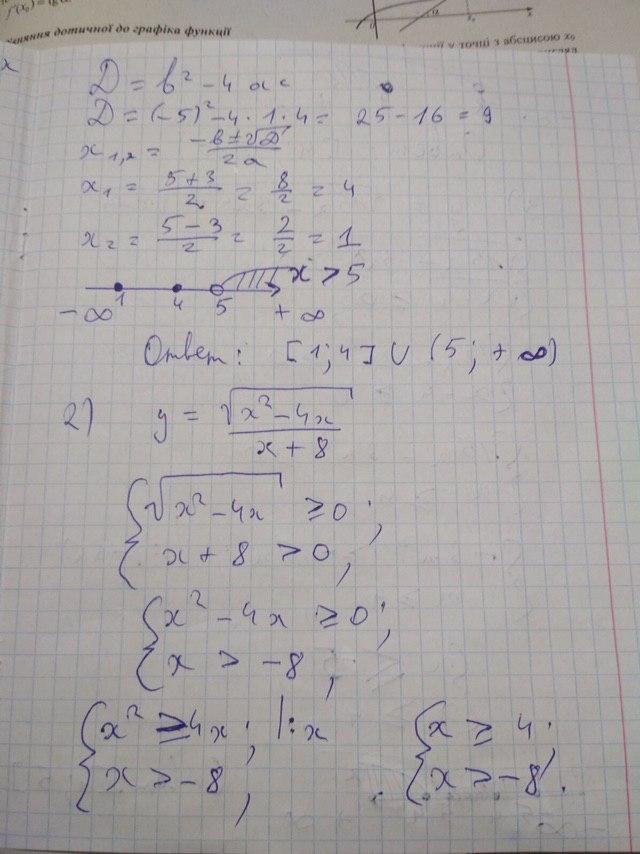 f'(x₀) = tg
няння дотичної до графіка функції
у точці з абсцисою x₀
D = b² - 4ac
D = (-5)² - 4 · 1 · 4 = 25 - 16 = 9
x₁,₂ = (-b ± √D)/(2a)
x₁ = (5 + 3)/2 = 8/2 = 4
x₂ = (5 - 3)/2 = 2/2 = 1
x > 5
1 4 5
-∞ +∞
Ответ: [1; 4] ∪ (5; +∞)
2) y = √(x² - 4x)/(x + 8)
{ √(x² - 4x) ≥ 0;
x + 8 > 0;
{ x² - 4x ≥ 0;
x > -8;
{ x² ≥ 4x; |:x { x ≥ 4;
x > -8; x > -8.